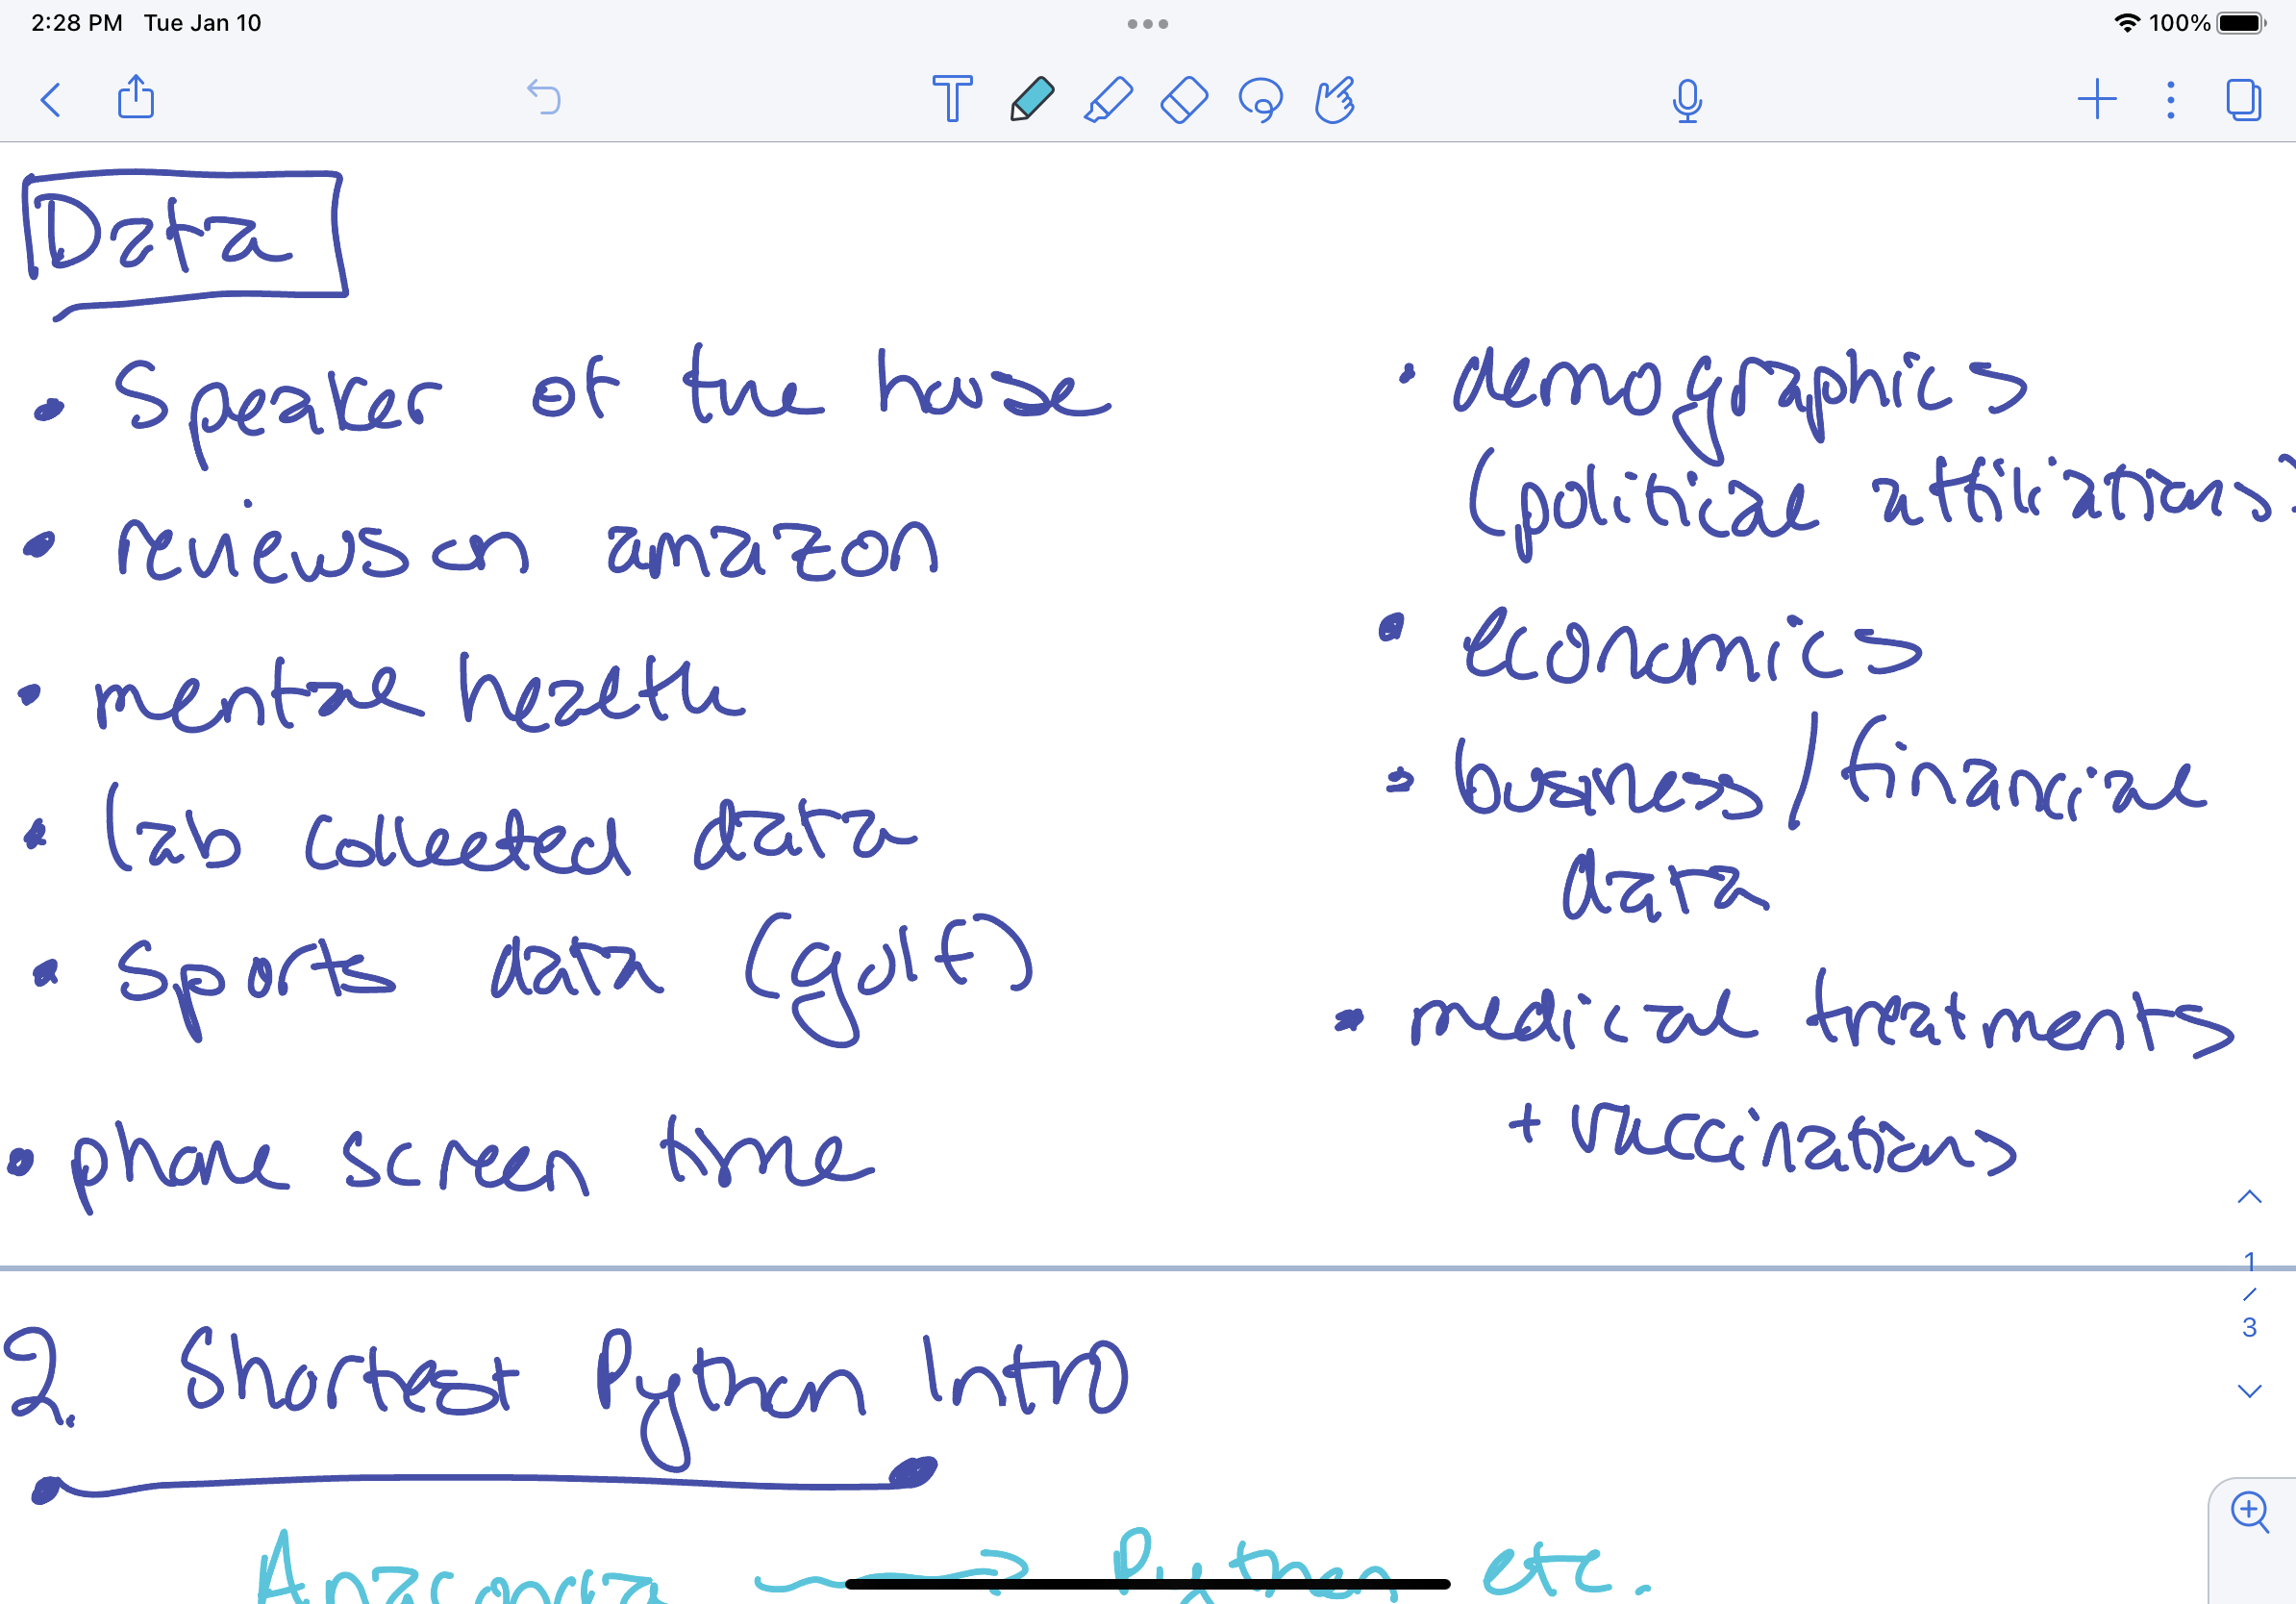 2:28 PM Tue Jan 10
100%
Data
• Speaker of the house
• reviews on amazon
• mental health
• lab collected data
• sports data (golf)
• phone screen time
• demographics
(political affiliations)
• Economics
• business/financial
data
• medical treatments
+ vaccinations
1
/
3
2. Shortest Python Intro
Anaconda → Python etc.